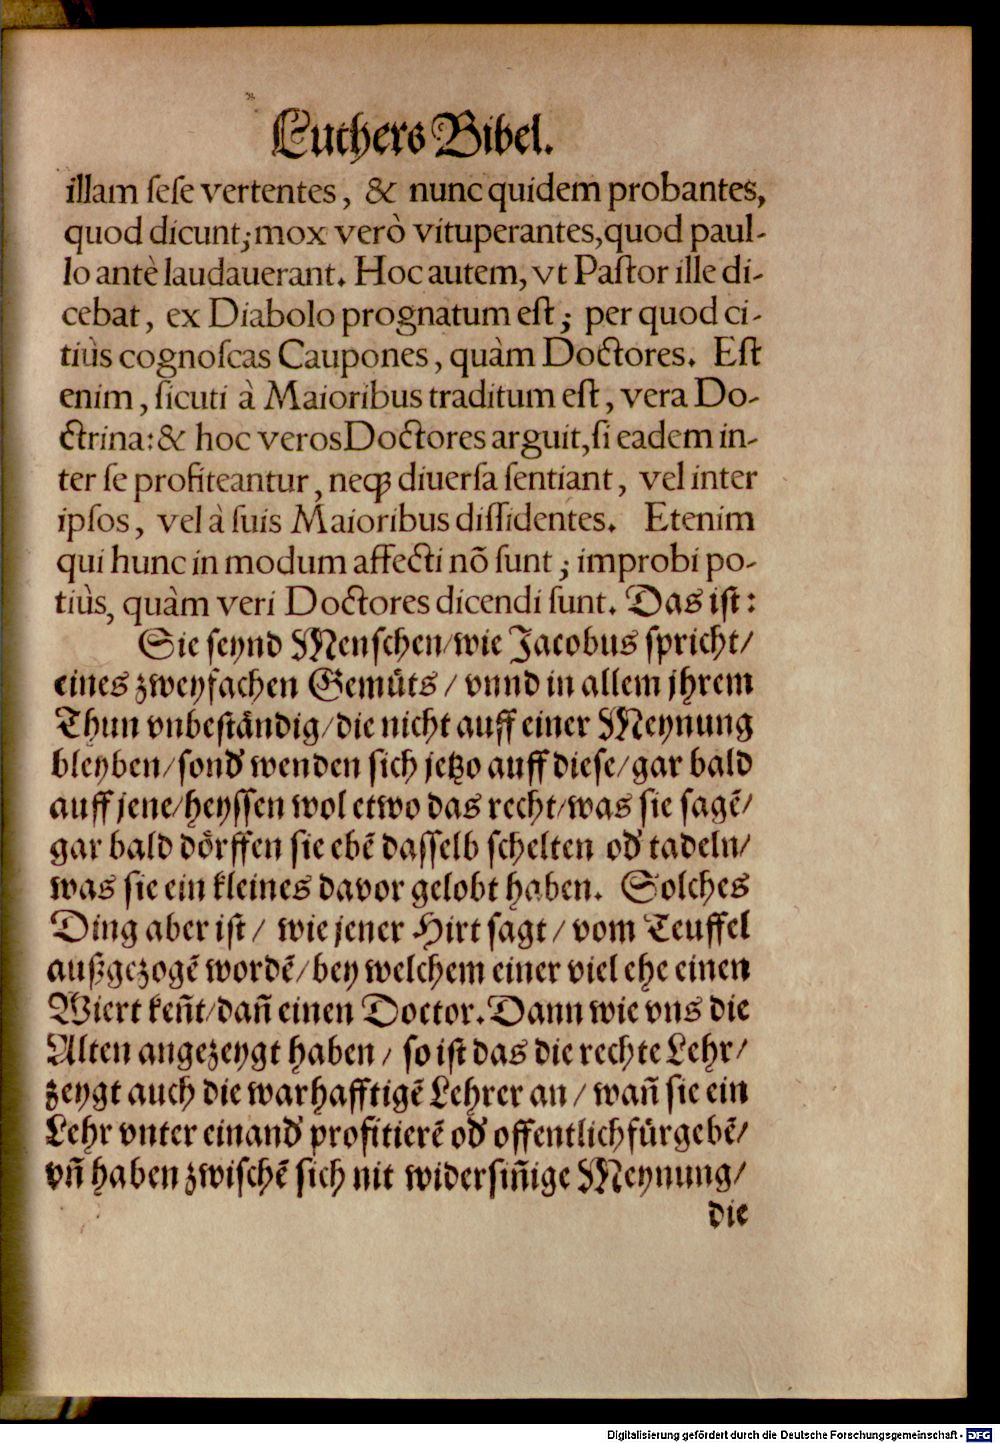 Luthers Bibel.
illam ſeſe vertentes, & nunc quidem probantes,
quod dicunt; mox verò vituperantes, quod paul-
lo antè laudauerant. Hoc autem, vt Paſtor ille di-
cebat, ex Diabolo prognatum eſt; per quod ci-
tiùs cognoſcas Caupones, quàm Doctores. Eſt
enim, ſicuti à Maioribus traditum eſt, vera Do-
ctrina: & hoc veros Doctores arguit, ſi eadem in-
ter ſe profiteantur, neqꝫ diuerſa ſentiant, vel inter
ipſos, vel à ſuis Maioribus diſſidentes. Etenim
qui hunc in modum affecti nõ ſunt; improbi po-
tiùs, quàm veri Doctores dicendi ſunt. Das iſt:
Sie ſeynd Menſchen/ wie Jacobus ſpricht/
eines zweyfachen Gemüts / vnnd in allem jhrem
Thun vnbeſtändig/ die nicht auff einer Meynung
bleyben/ ſond' wenden ſich jetzo auff dieſe/ gar bald
auff jene/ heyſſen wol etwo das recht/ was ſie ſagẽ/
gar bald dörffen ſie ebẽ daſſelb ſchelten od' tadeln/
was ſie ein kleines davor gelobt haben. Solches
Ding aber iſt / wie jener Hirt ſagt / vom Teuffel
außgezogẽ wordẽ/ bey welchem einer viel ehe einen
Wiert keñt/ dañ einen Doctor. Dann wie vns die
Alten angezeygt haben / ſo iſt das die rechte Lehr/
zeygt auch die warhafftigẽ Lehrer an / wañ ſie ein
Lehr vnter einand' profitierẽ od' offentlich fürgebẽ/
vñ haben zwiſchẽ ſich nit widerſiñige Meynung/
die
Digitalisierung gefördert durch die Deutsche Forschungsgemeinschaft - DFG